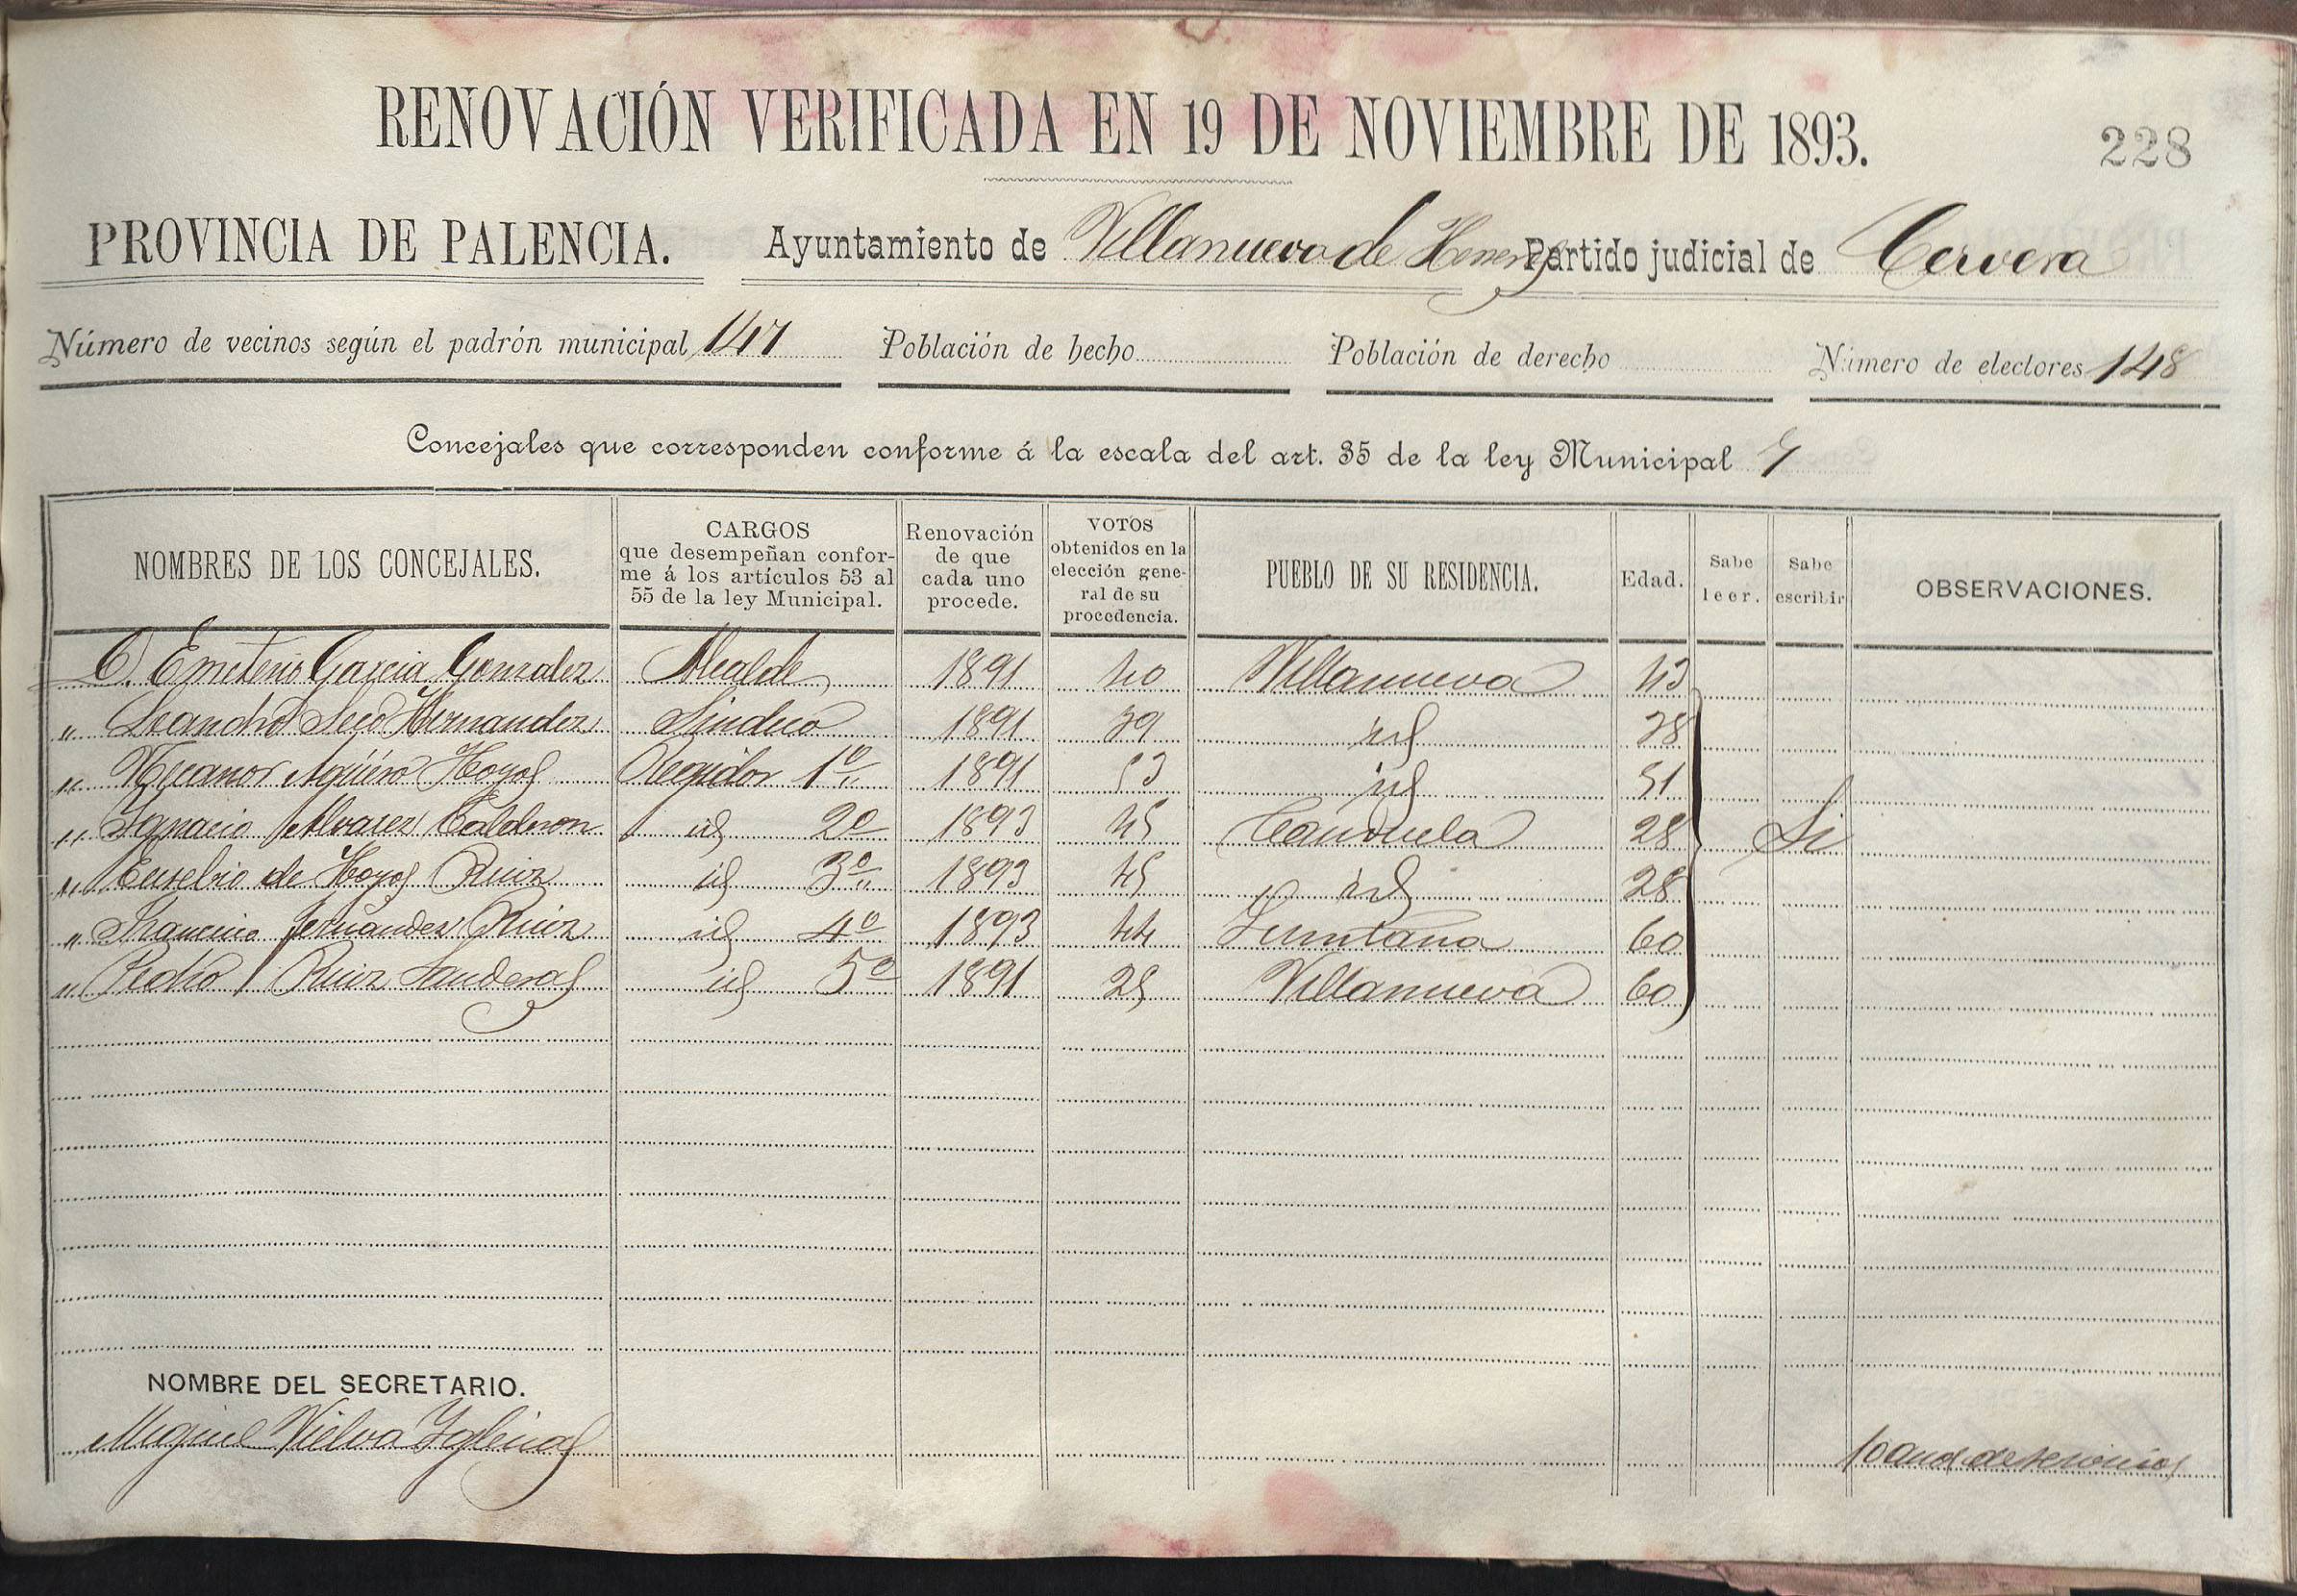 RENOVACIÓN VERIFICADA EN 19 DE NOVIEMBRE DE 1893.
228
PROVINCIA DE PALENCIA. Ayuntamiento de Villanueva de Henares Partido judicial de Cervera
Número de vecinos según el padrón municipal 147 Población de hecho Población de derecho Número de electores 148
Concejales que corresponden conforme á la escala del art. 35 de la ley Municipal 7
NOMBRES DE LOS CONCEJALES. CARGOS que desempeñan conforme á los artículos 53 al 55 de la ley Municipal. Renovación de que cada uno procede. VOTOS obtenidos en la elección general de su procedencia. PUEBLO DE SU RESIDENCIA. Edad. Sabe leer. Sabe escribir OBSERVACIONES.
D. Emeterio Garcia Gonzalez Alcalde 1891 40 Villanueva 43
" Leandro Seco Hernandez Sindico 1891 39 id 38
" Nicanor Agüero Hoyos Regidor 1º 1891 53 id 51
" Ygnacio Alvarez Calderon id 2º 1893 45 Canduela 28 Si
" Eusebio de Hoyos Ruiz id 3º 1893 45 id 28
" Francisco Fernandez Ruiz id 4º 1893 44 Quintana 60
" Pedro Ruiz id 5º 1891 25 Villanueva 60
NOMBRE DEL SECRETARIO.
Miguel Vielva Yglesias 10 años de servicios